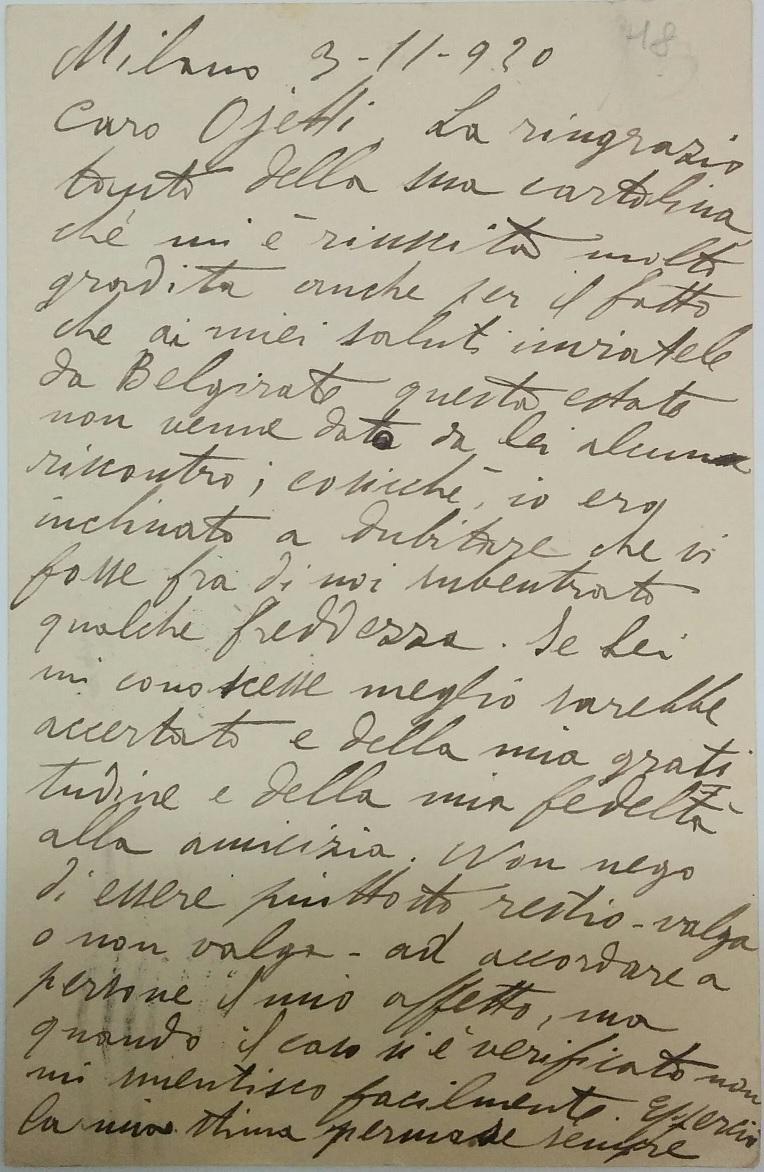 48
Milano 3-11-920
Caro Ojetti, La ringrazio
tanto della sua cartolina
che mi è riuscita molto
gradita anche per il fatto
che ai miei saluti inviatele
da Belgirate questa estate
non venne dato da lei alcun
riscontro; cosicchè, io ero
inclinato a dubitare che vi
fosse fra di noi subentrato
qualche freddezza. Se Lei
mi conoscesse meglio sarebbe
accertato e della mia grati
tudine e della mia fedeltà
alla amicizia. Non nego
di essere piuttosto restio - valga
o non valga - ad accordare a
persone il mio affetto, ma
quando il caso si è verificato non
mi smentisco facilmente. E perciò
la mia stima permane sempre